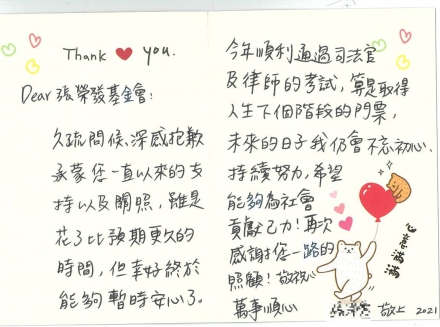 Thank you.
Dear 張榮發基金會:
久疏問候、深感抱歉
承蒙您一直以來的支
持以及關照,雖是
花了比預期更久的
時間,但幸好終於
能夠暫時安心了。
今年順利通過司法官
及律師的考試,算是取得
人生下個階段的門票,
未來的日子我仍會不忘初心.
持續努力,希望
能夠為社會
貢獻己力!再次
感謝您一路的
照顧!敬祝
萬事順心
心意滿滿
敬上 2021